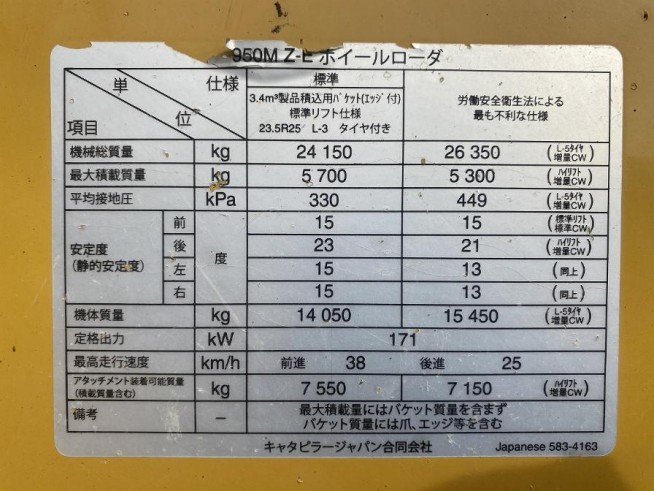 950M Z-E ホイールローダ
単 位 仕様 項目
標準
3.4m³製品積込用バケット(エッジ付)
標準リフト仕様
23.5R25 L-3 タイヤ付き
労働安全衛生法による
最も不利な仕様
機械総質量 kg 24 150 26 350 (L-5タイヤ 増量CW)
最大積載質量 kg 5 700 5 300 (ハイリフト 増量CW)
平均接地圧 kPa 330 449 (L-5タイヤ 増量CW)
安定度 (静的安定度) 度
前 15 15 (標準リフト 標準CW)
後 23 21 (ハイリフト 増量CW)
左 15 13 (同上)
右 15 13 (同上)
機体質量 kg 14 050 15 450 (L-5タイヤ 増量CW)
定格出力 kW 171
最高走行速度 km/h 前進 38 後進 25
アタッチメント装着可能質量 (積載質量含む) kg 7 550 7 150 (ハイリフト 増量CW)
備考 − 最大積載量にはバケット質量を含まず
バケット質量には爪、エッジ等を含む
キャタピラージャパン合同会社 Japanese 583-4163